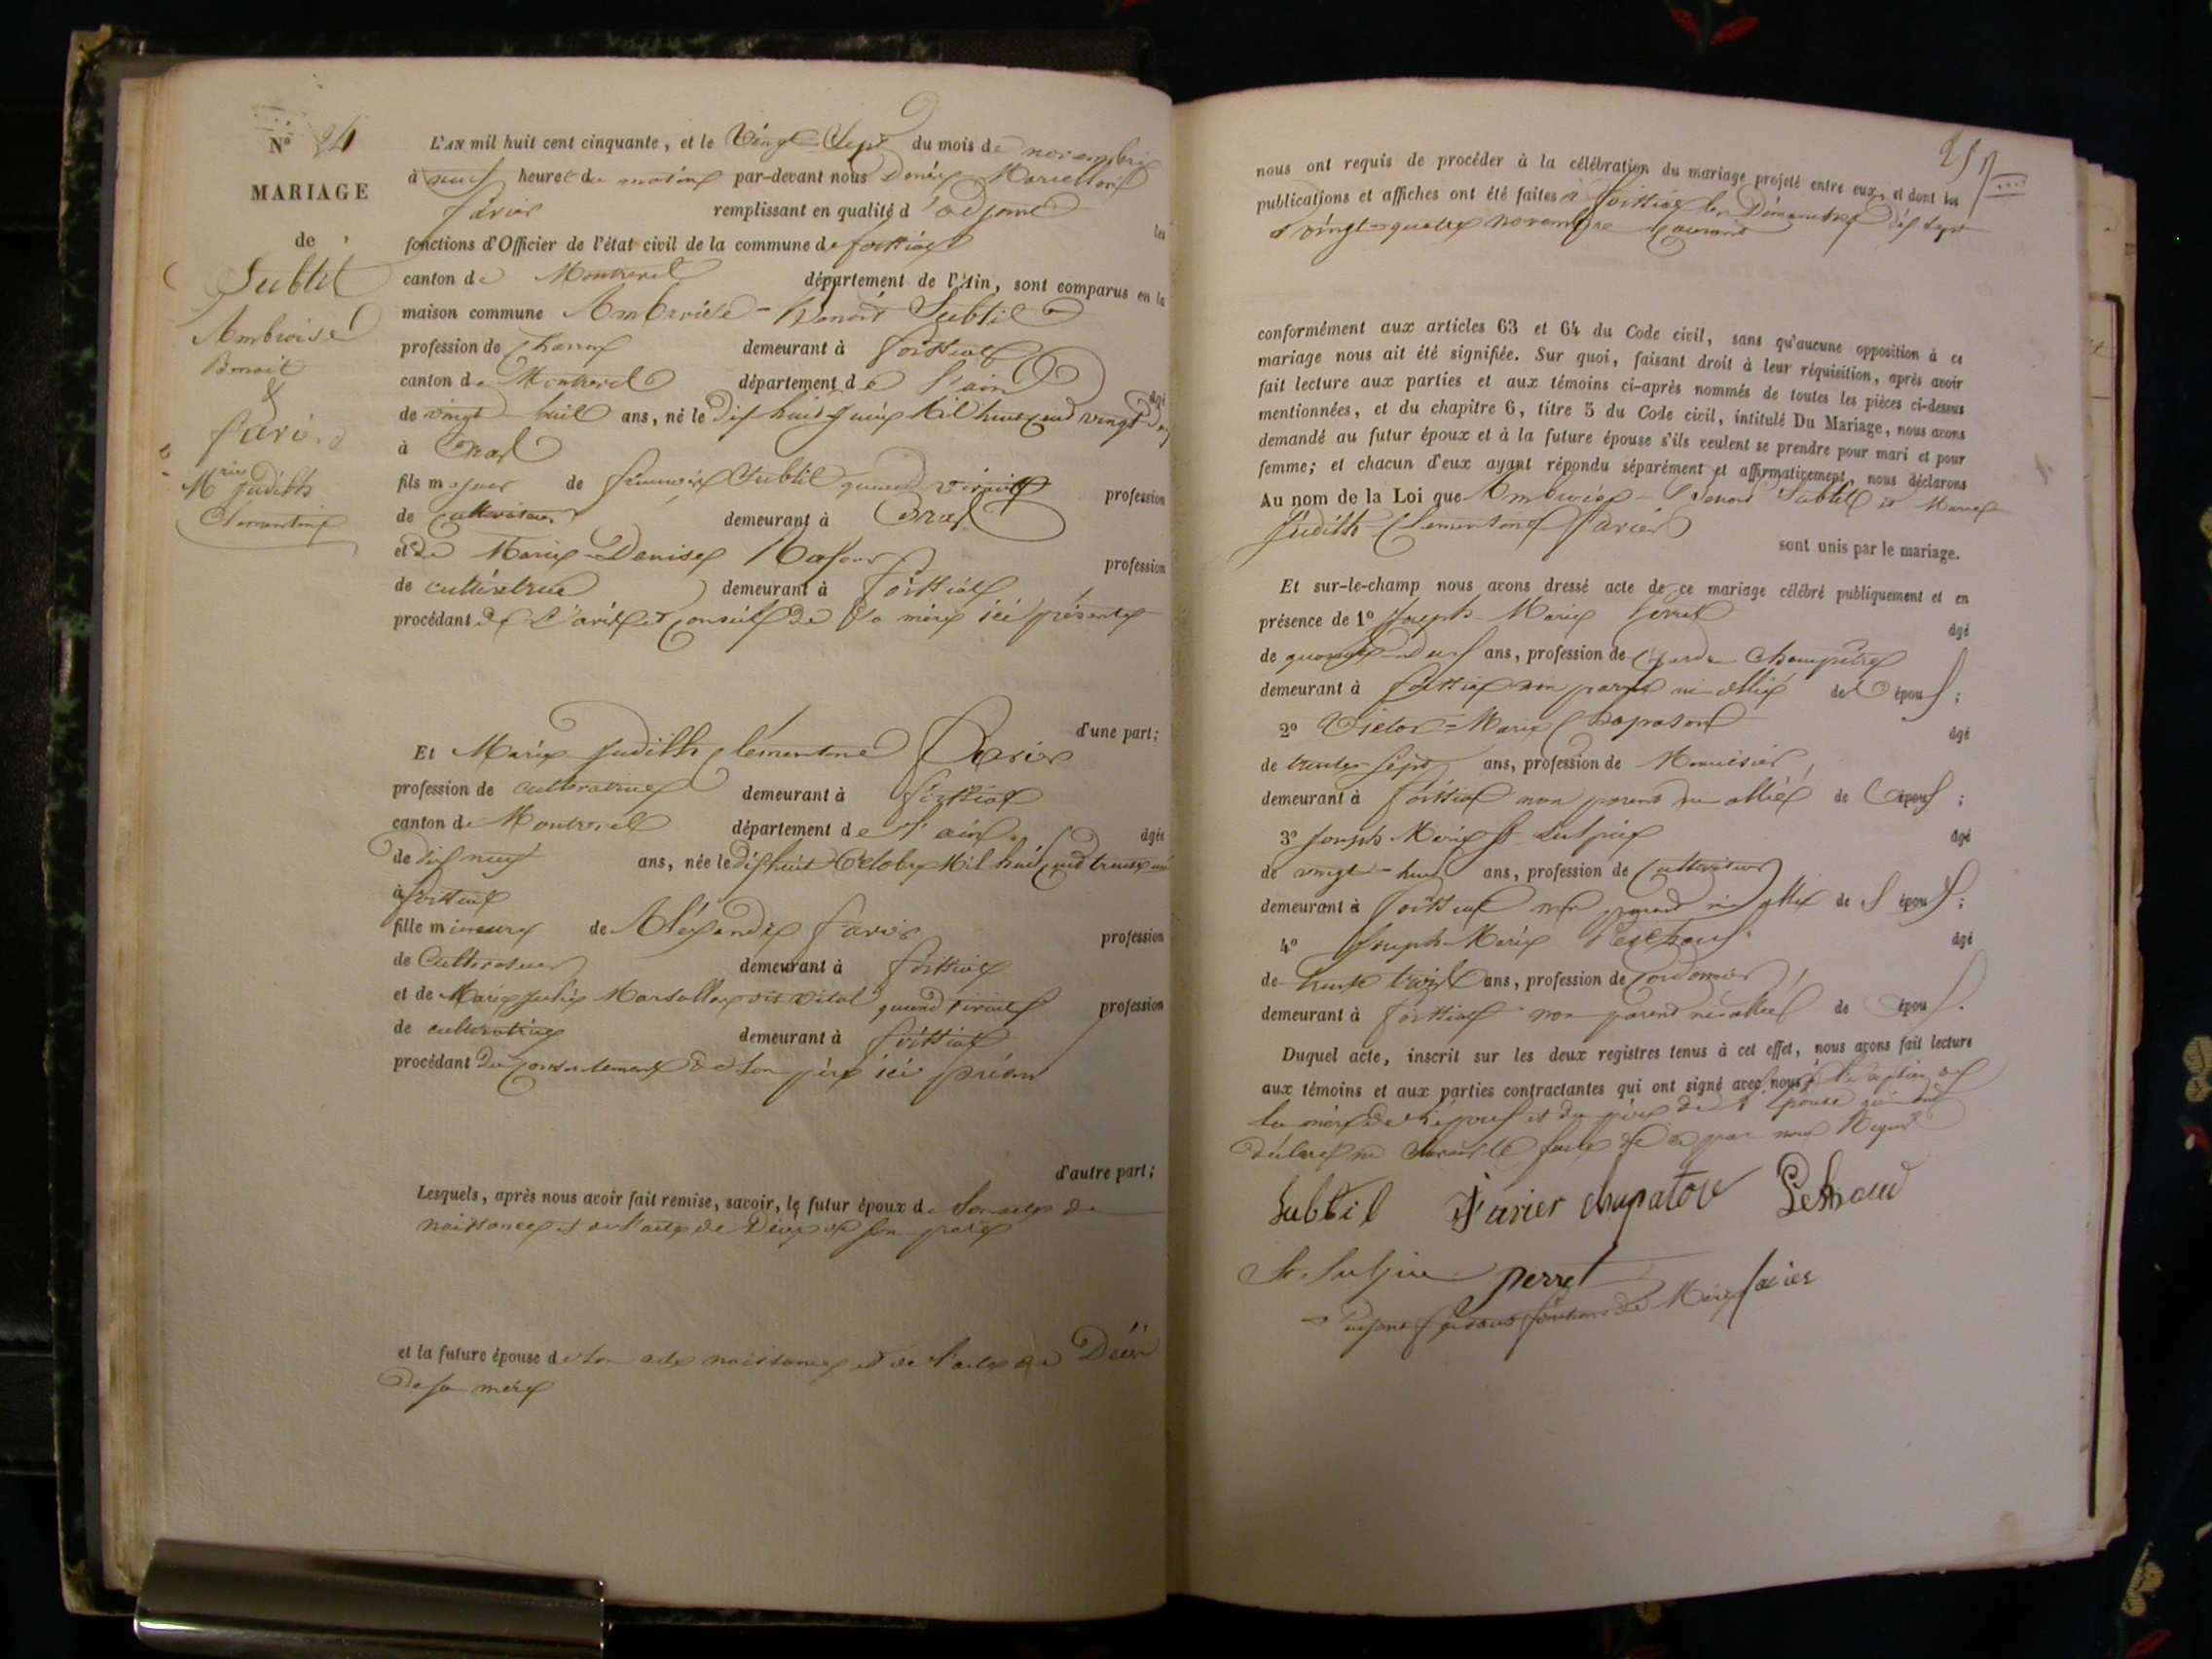 N° 24
MARIAGE
de
Subtil
Ambroise
Benoit
&
favier
Mrie Judith
Clementine
L'AN mil huit cent cinquante, et le Vingt-Sept du mois de novembre
à neuf heures du matin par-devant nous Denis Marie
favier remplissant en qualité d'adjoint les
fonctions d'Officier de l'état civil de la commune de foissiat
canton de Montrevel département de l'Ain, sont comparus en la
maison commune Ambroise-Benoit Subtil
profession de demeurant à foissiat
canton de Montrevel département de l'ain âgé
de vingt huit ans, né le dix huit juin Mil huit cent vingt deux
à Cras
fils majeur de françois Subtil quand vivait profession
de Cultivateur demeurant à Cras
et de Marie-Denise profession
de cultivatrice demeurant à foissiat
procédant de l'avis et conseil de sa mère ici présente
d'une part;
Et Marie Judith Clémentine favier
profession de cultivatrice demeurant à foissiat
canton de Montrevel département de l'ain âgée
de dix neuf ans, née le dix huit Octobre Mil huit cent trente un
à foissiat
fille mineure de Aléxandre favier profession
de Cultivateur demeurant à foissiat
et de Marie Julie dit Vital quand vivait profession
de cultivatrice demeurant à foissiat
procédant du consentement de son père ici présent
d'autre part;
Lesquels, après nous avoir fait remise, savoir, le futur époux de son acte de
naissance et de l'acte de Décès de son père
et la future épouse de son acte naissance et de l'acte de Décès
de sa mère
nous ont requis de procéder à la célébration du mariage projeté entre eux, et dont les
publications et affiches ont été faites à foissiat les Dimanches dix sept
et vingt-quatre novembre courant
conformément aux articles 63 et 64 du Code civil, sans qu'aucune opposition à ce
mariage nous ait été signifiée. Sur quoi, faisant droit à leur réquisition, après avoir
fait lecture aux parties et aux témoins ci-après nommés de toutes les pièces ci-dessus
mentionnées, et du chapitre 6, titre 5 du Code civil, intitulé Du Mariage, nous avons
demandé au futur époux et à la future épouse s'ils veulent se prendre pour mari et pour
femme; et chacun d'eux ayant répondu séparément et affirmativement, nous déclarons
Au nom de la Loi que Ambroise-Benoit Subtil et Marie
Judith-Clementine favier
sont unis par le mariage.
Et sur-le-champ nous avons dressé acte de ce mariage célébré publiquement et en
présence de 1° Joseph-Marie Perret âgé
de ans, profession de Garde Champêtre
demeurant à foissiat non parent ni allié des époux;
2° Victor-Marie Chapatou âgé
de trente-sept ans, profession de Menuisier
demeurant à foissiat non parent ni allié des époux;
3° Joseph Marie St Sulpice âgé
de vingt-huit ans, profession de Cultivateur
demeurant à foissiat non parent ni allié des époux;
4° Joseph-Marie âgé
de trente trois ans, profession de Cordonnier
demeurant à foissiat non parent ni allié des époux.
Duquel acte, inscrit sur les deux registres tenus à cet effet, nous avons fait lecture
aux témoins et aux parties contractantes qui ont signé avec nous à l'exception de
la mère de l'époux et du père de l'épouse qui ont
déclaré ne savoir le faire de ce par nous Requis
Subtil favier chapatou
St Sulpice perret
adjoint faisant fonctions de Maire favier